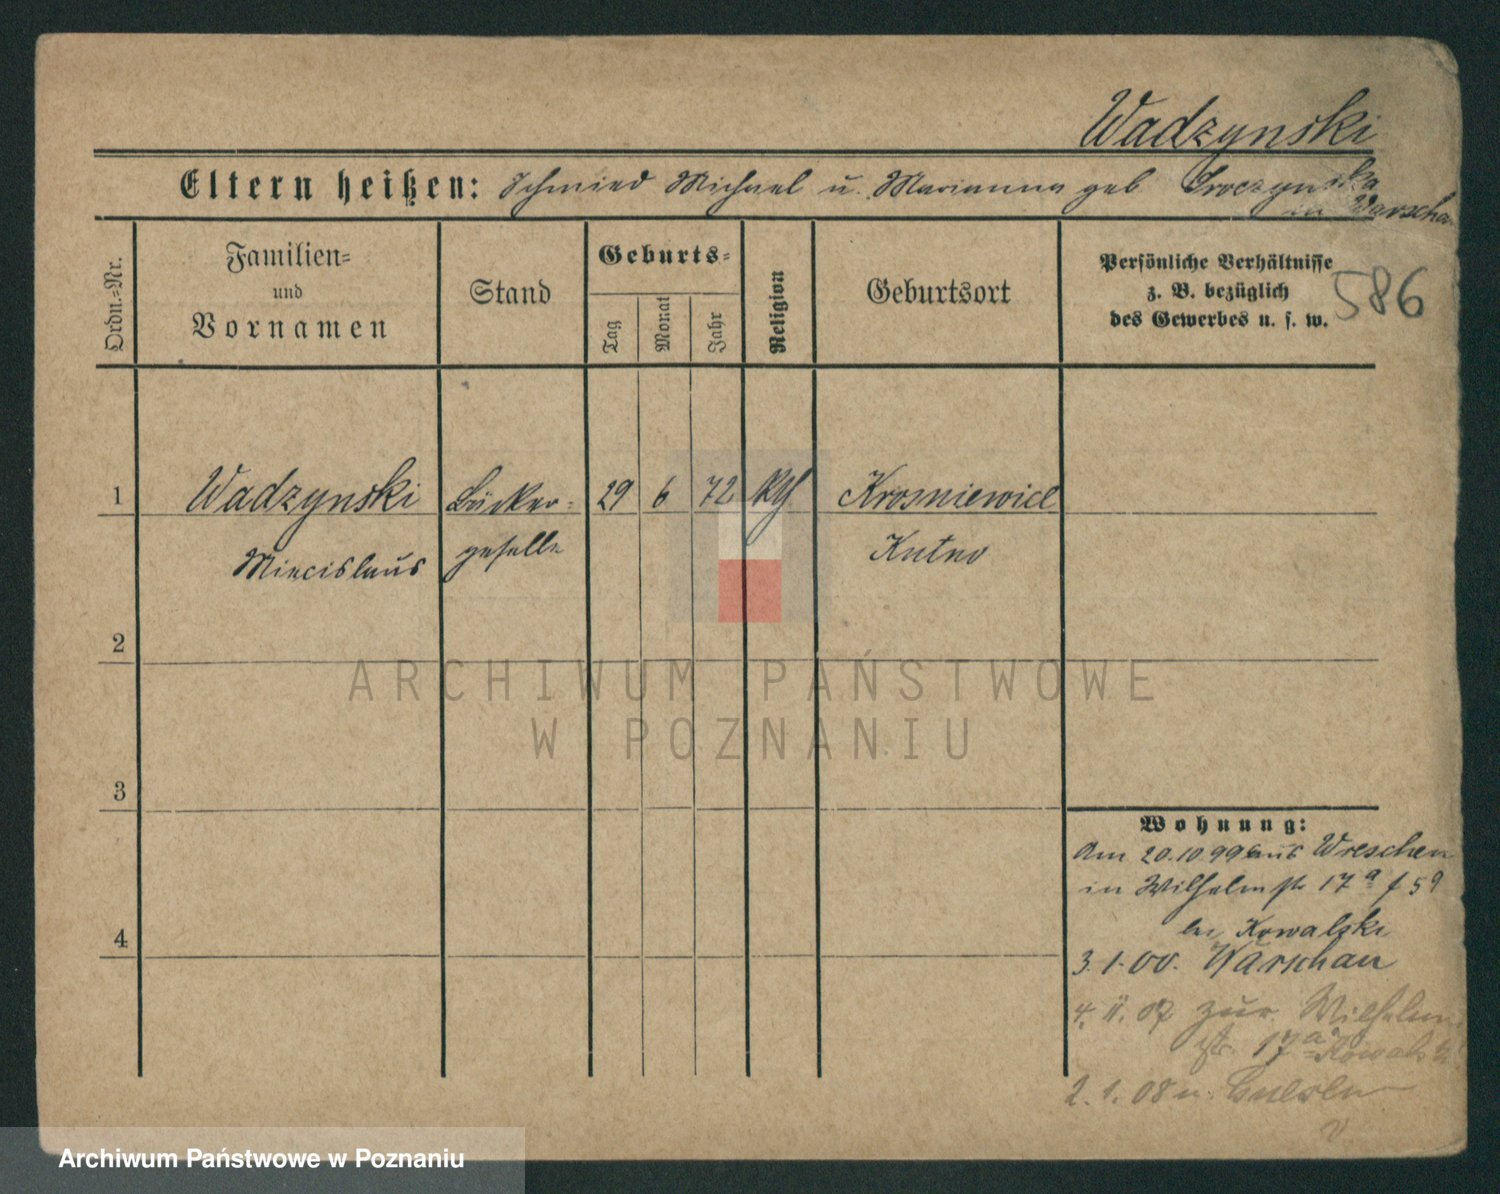 Wadzynski
Eltern heißen: Schmied Michael u. Marianna geb
in Warschau
Ordn.=Nr.
Familien=
und
Vornamen
Stand
Geburts=
Tag
Monat
Jahr
Religion
Geburtsort
Persönliche Verhältnisse
z. B. bezüglich
des Gewerbes u. s. w.
586
1
Wadzynski
Bäcker=
29
6
72
Kth
Krosniewicl
Miecislaus
geselle
Kutno
2
ARCHIWUM PAŃSTWOWE
W POZNANIU
3
Wohnung:
Am 20.10.99 aus Wreschen
in Wilhelmstr 17a
bei Kowalski
3.1.00. Warschau
4. 11. 07 zur. Wilhelm
str. 17a Kowalski
2. 1. 08 n.
4
Archiwum Państwowe w Poznaniu